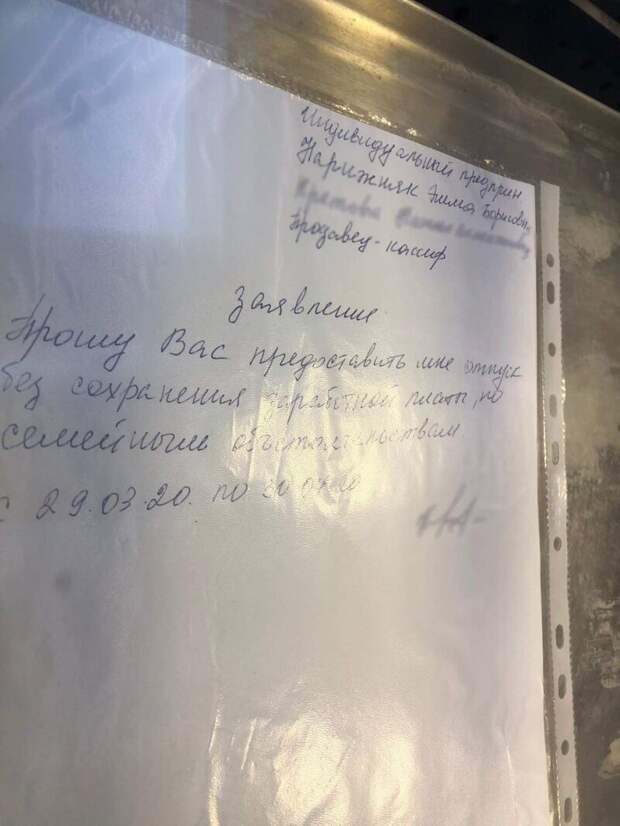 Индивидуальный предприн
Парижняк Эмма Борисовн
Продавец-кассир
Заявление
Прошу Вас предоставить мне отпуск
без сохранения заработной платы, по
семейным обстоятельствам
с 29.03.20. по 30